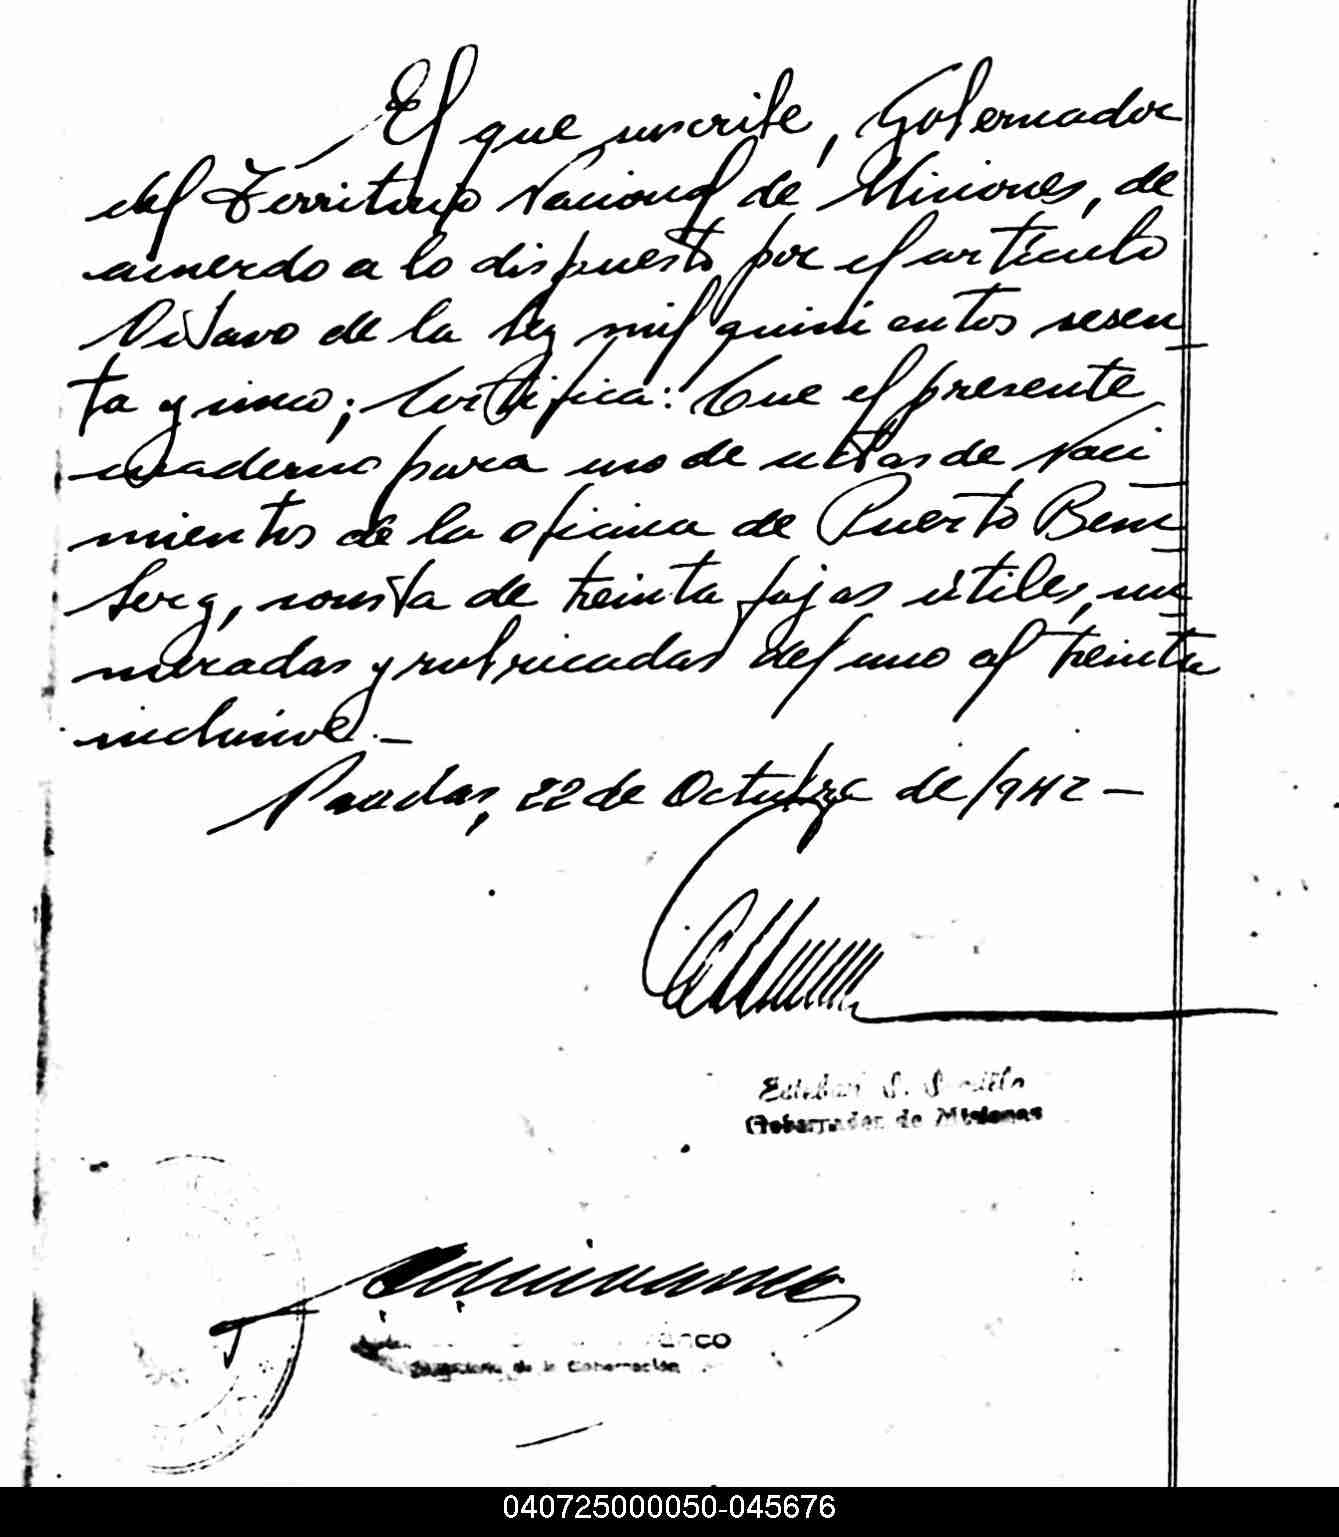 El que suscribe, Gobernador
del Territorio Nacional de Misiones, de
acuerdo a lo dispuesto por el artículo
Octavo de la Ley mil quinientos sesen
ta y cinco; Certifica: Que el presente
cuaderno para uso de actas de Naci
mientos de la oficina de Puerto Bem
berg, consta de treinta fojas útiles, nu
meradas y rubricadas del uno al treinta
inclusive.-
Posadas, 22 de Octubre de 1942 -
Esteban S.
Gobernador de Misiones
de la Gobernación
040725000050-045676